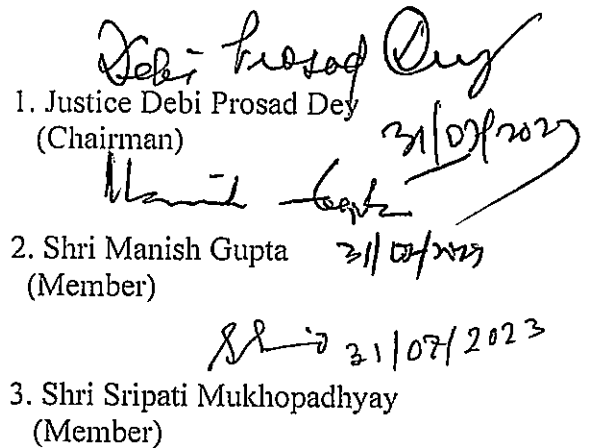 Debi Prosad Dey
1. Justice Debi Prosad Dey
(Chairman)
31/07/2023
Manish Gupta
2. Shri Manish Gupta
31/07/2023
(Member)
31/07/2023
3. Shri Sripati Mukhopadhyay
(Member)